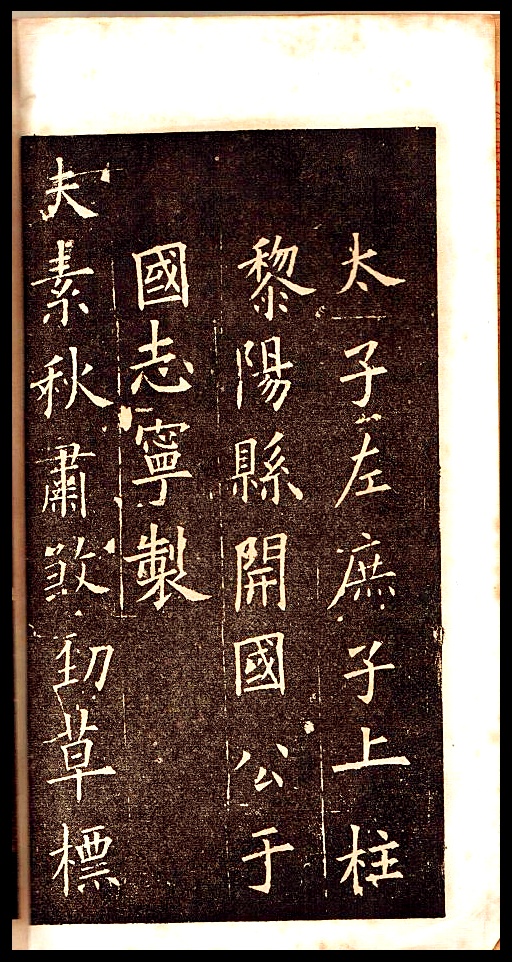 太子左庶子上柱
黎陽縣開國公于
國志寧製
夫素秋肅煞勁草標